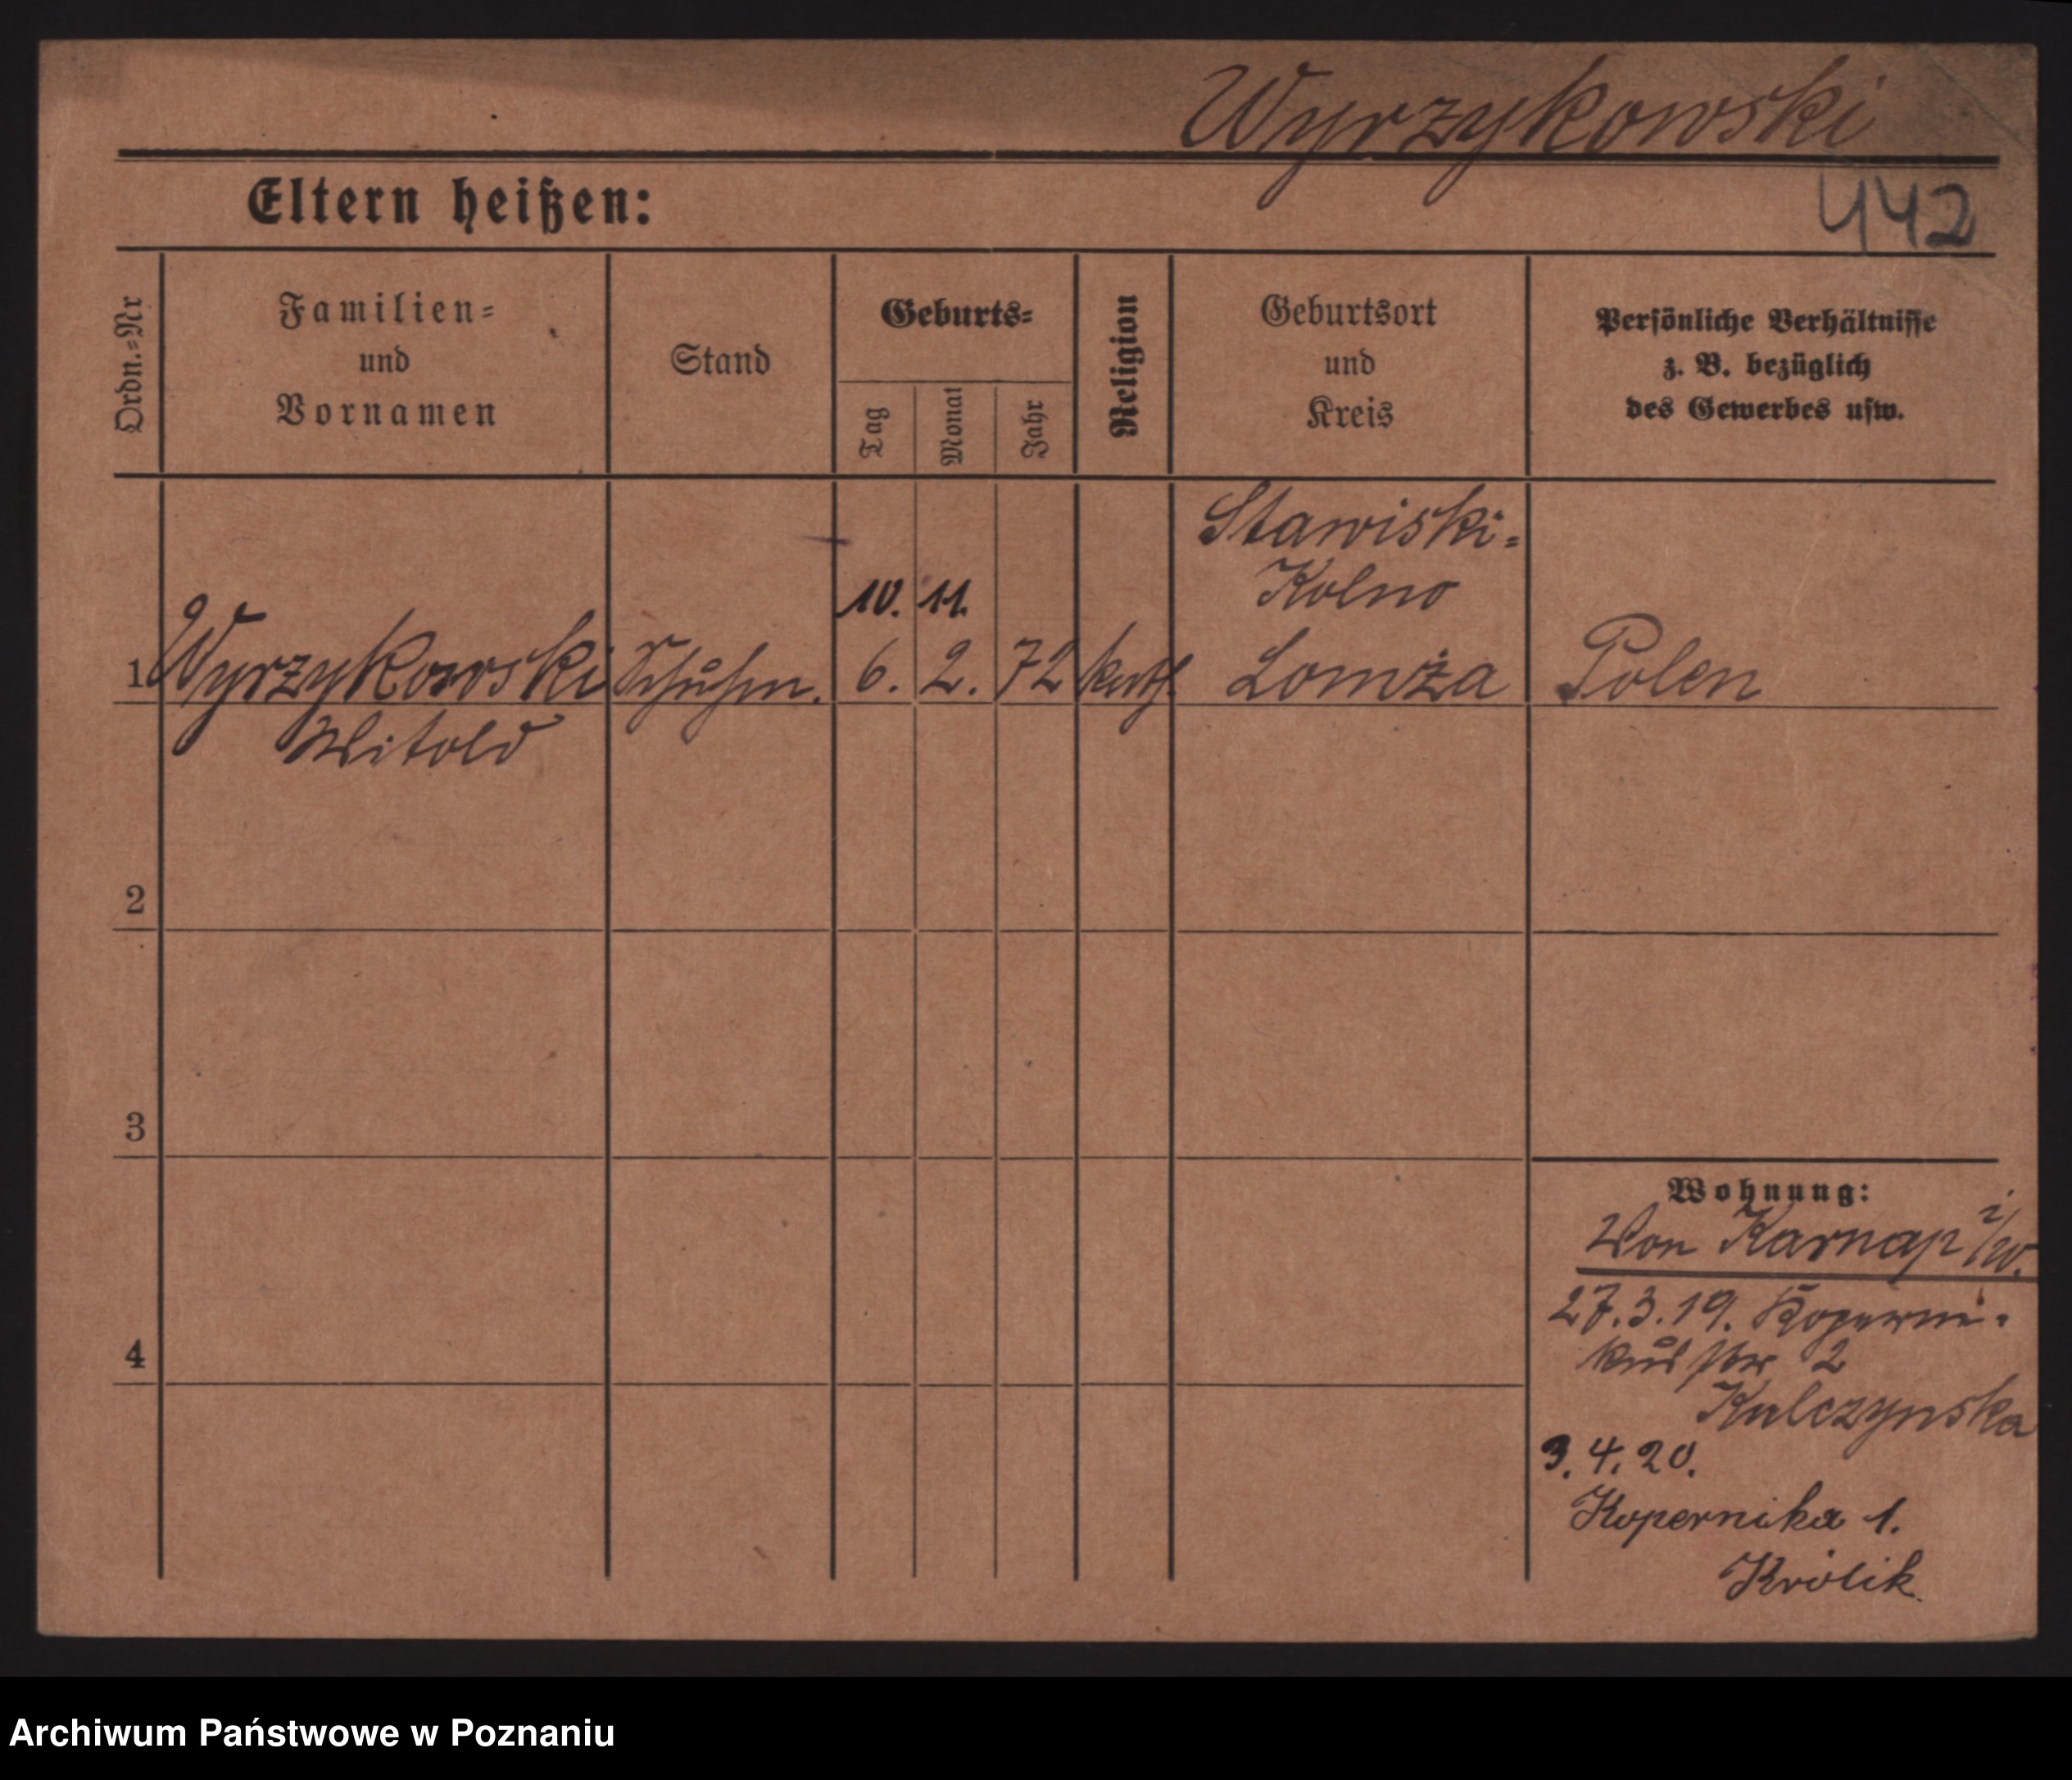 Wyrzykowski
Eltern heißen:
442
Ordn.=Nr
Familien=
und
Vornamen
Stand
Geburts=
Tag
Monat
Jahr
Religion
Geburtsort
und
Kreis
Persönliche Verhältnisse
z. B. bezüglich
des Gewerbes usw.
Stawiski=
10. 11. Kolno
1 Wyrzykowski Schuhm. 6. 2. 72 kath. Lomża Polen
Witold
2
3
4
Wohnung:
Von Karnap
27.3.19. Koperni-
kus str 2
Kulczynska
3. 4. 20.
Kopernika 1.
Królik.
Archiwum Państwowe w Poznaniu